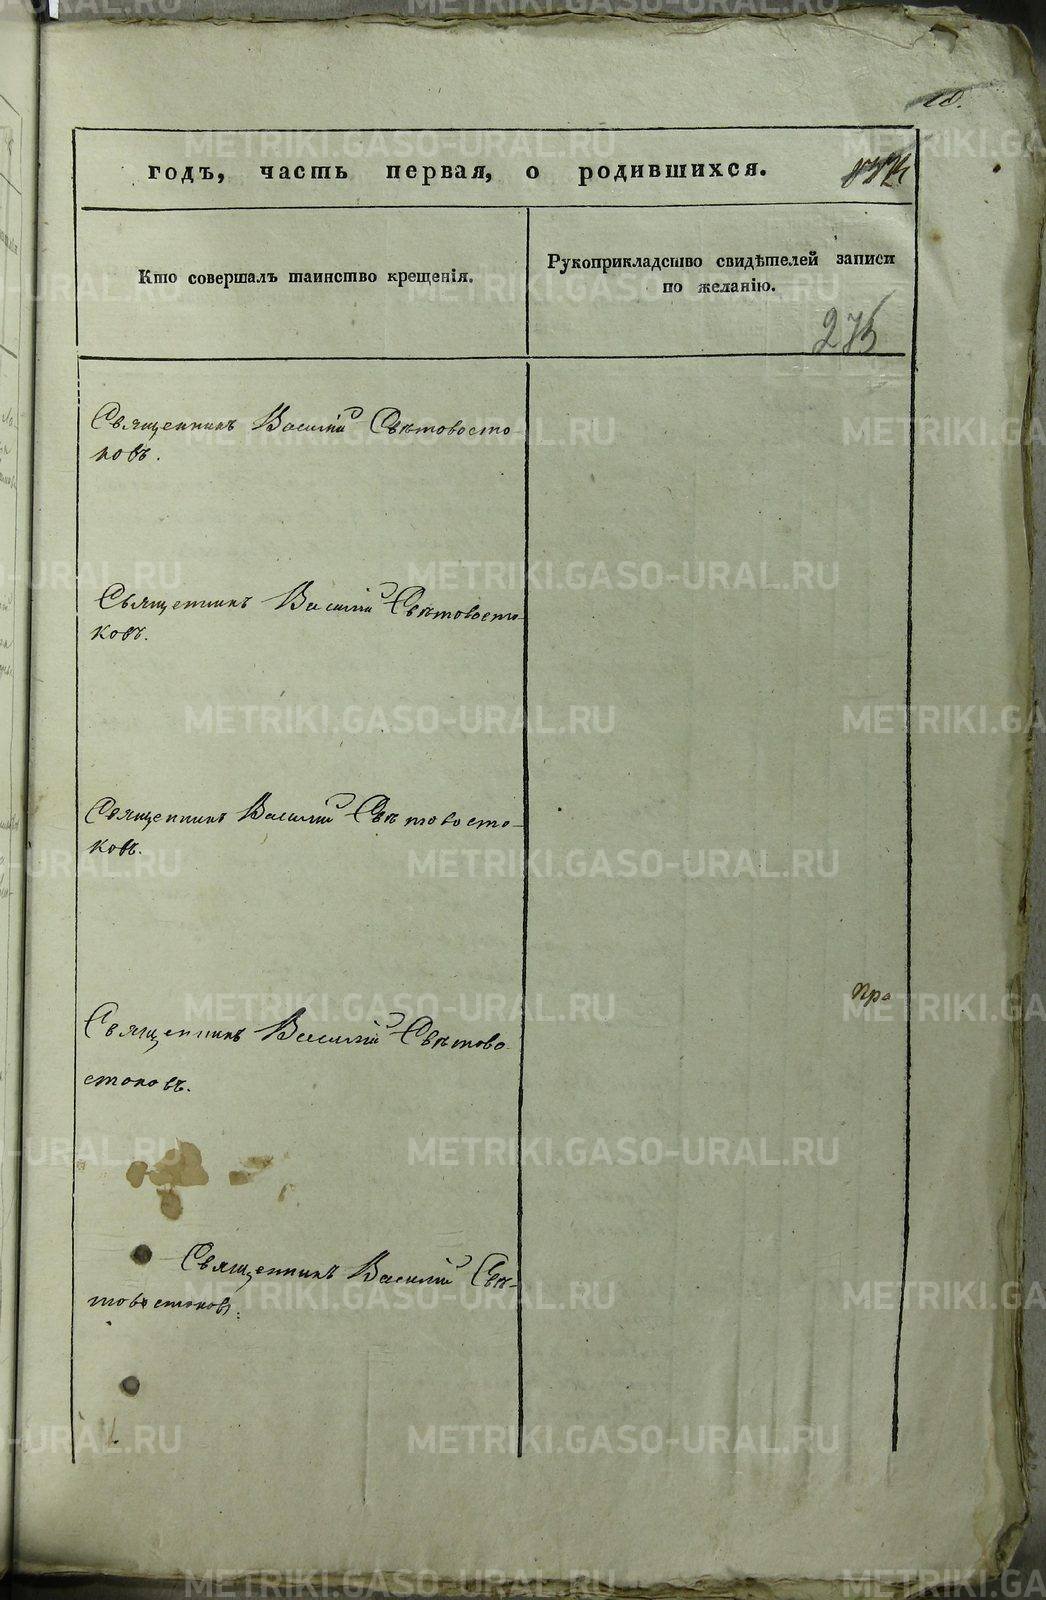 годъ, часть первая, о родившихся.
Кто совершалъ таинство крещенія.
Рукоприкладство свидѣтелей записи
по желанію.
275
Священникъ Василій Свѣтовосто-
ковъ.
Священникъ Василій Свѣтовосто-
ковъ.
Священникъ Василій Свѣтовосто-
ковъ.
Про
Священникъ Василій Свѣтово-
стоковъ.
Священникъ Василій Свѣ-
товостоковъ.
METRIKI.GASO-URAL.RU